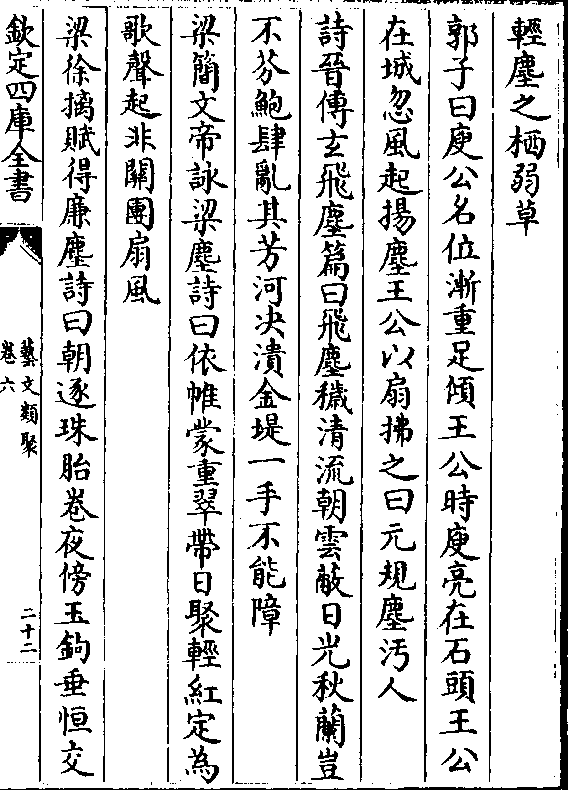 輕塵之栖弱草
郭子曰庾公名位漸重足傾王公時庾亮在石頭王公
在城忽風起揚塵王公以扇拂之曰元規塵汚人
詩晉傅玄飛塵篇曰飛塵穢清流朝雲蔽日光秋蘭豈
不芬鮑肆亂其芳河决潰金堤一手不能障
梁簡文帝詠梁塵詩曰依帷蒙重翠帶日聚輕紅定為
歌聲起非關團扇風
梁徐摛賦得廉塵詩曰朝逐珠胎卷夜傍玉鉤垂恒交
欽定四庫全書
藝文類聚
卷六
二十二